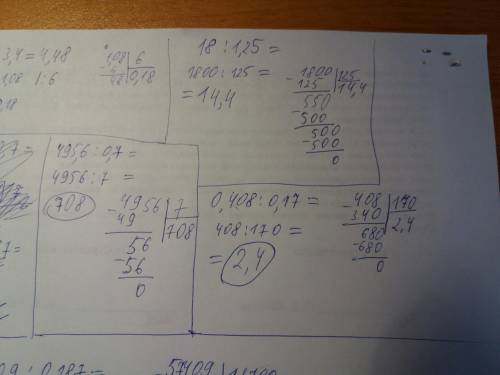 3,4 = 4,48
1,08 : 6
0,18
1,08 | 6
0,18
48
18 : 1,25 =
1800 : 125 =
= 14,4
-1800 | 125
125 | 14,4
550
-500
500
-500
0
0,7 =
7 =
4956 : 0,7 =
4956 : 7 =
708
-4956 | 7
49 | 708
56
-56
0
0,408 : 0,17 =
408 : 170 =
= 2,4
-408 | 170
340 | 2,4
680
-680
0
0,9 : 0,187 =
-57409